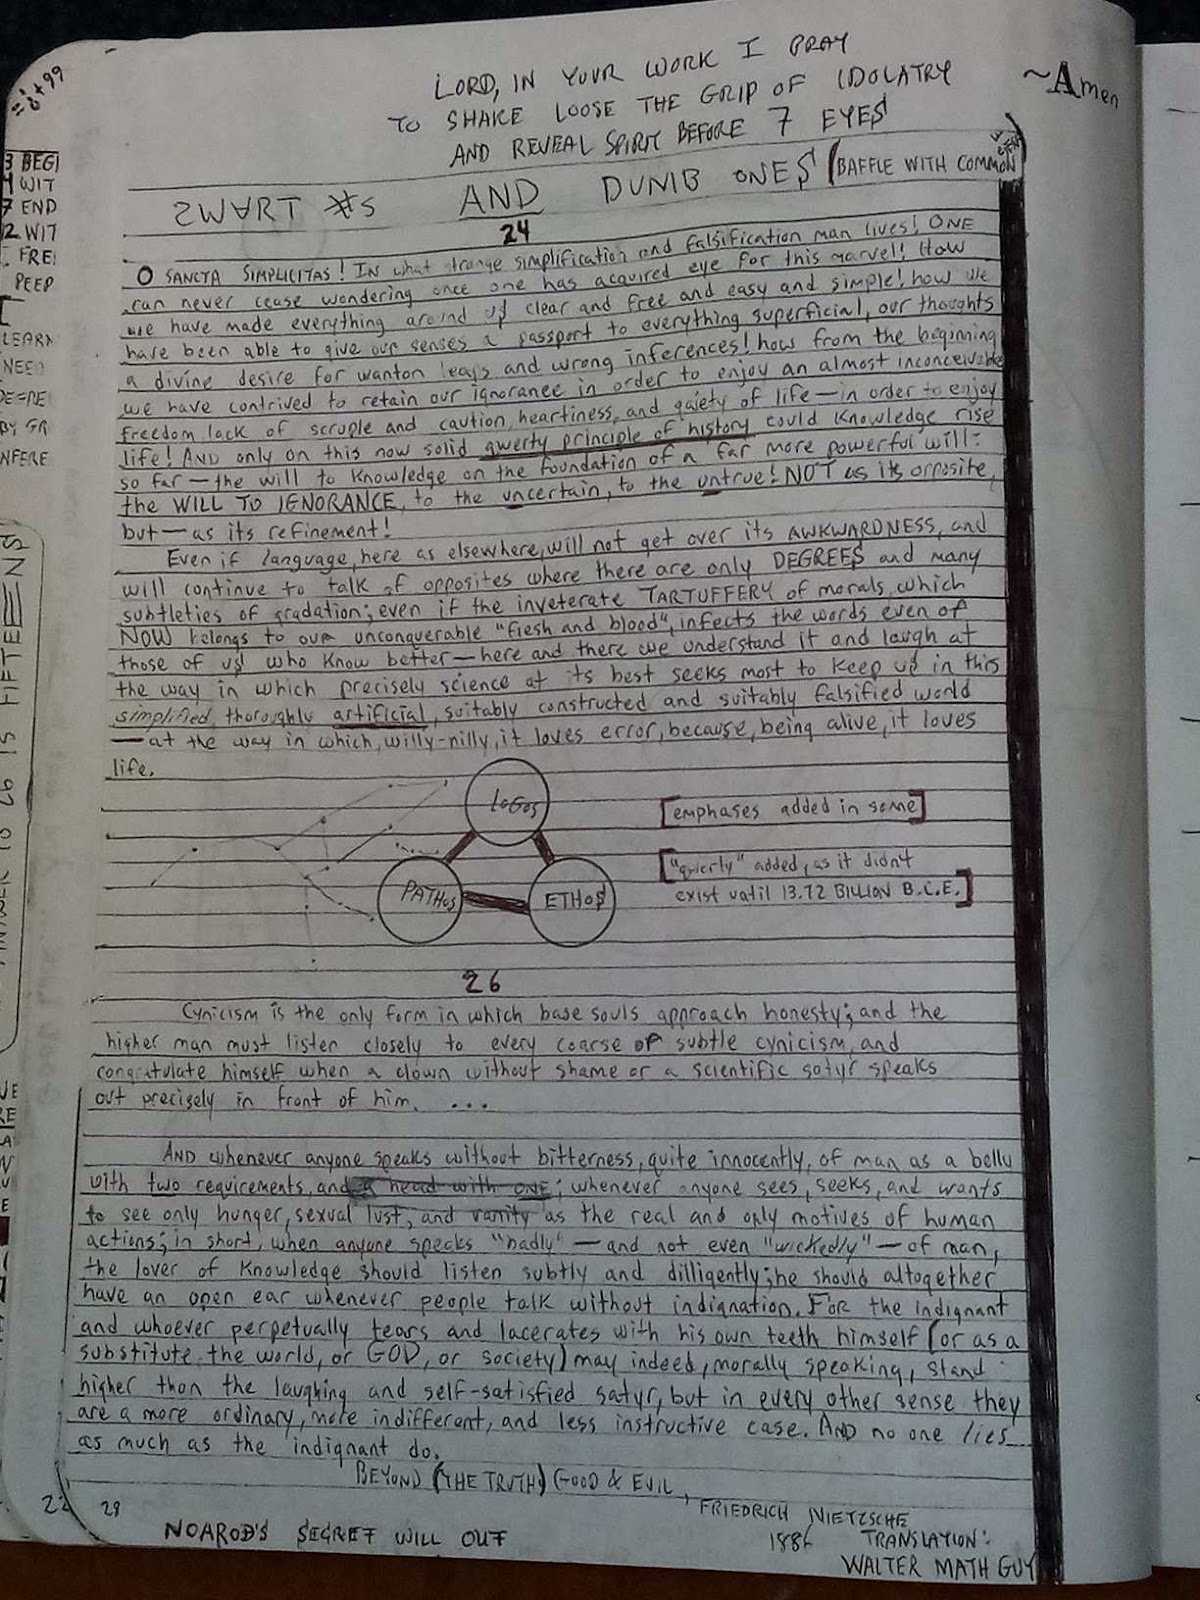 LORD, IN YOUR WORK I PRAY
TO SHAKE LOOSE THE GRIP OF IDOLATRY
AND REVEAL SPIRIT BEFORE 7 EYE$
~Amen
3 BEGI
4 WIT
7 END
2 WIT
FREI
PEEP
LEARN
NEED
BY GR
NFERE
SWART #s AND DUMB ONE$ (BAFFLE WITH COMMON
24
O SANCTA SIMPLICITAS! IN what strange simplification and falsification man lives! ONE
can never cease wondering once one has acquired eye for this marvel! How
we have made everything around us clear and free and easy and simple! how we
have been able to give our senses a passport to everything superficial, our thoughts
a divine desire for wanton leaps and wrong inferences! how from the beginning
we have contrived to retain our ignorance in order to enjoy an almost inconceivable
freedom, lack of scruple and caution, heartiness, and gaiety of life — in order to enjoy
life! AND only on this now solid qwerty principle of history could Knowledge rise
so far — the will to Knowledge on the foundation of a far more powerful will:
the WILL TO IGNORANCE, to the uncertain, to the untrue! NOT as its opposite,
but — as its refinement!
Even if language, here as elsewhere, will not get over its AWKWARDNESS, and
will continue to talk of opposites where there are only DEGREE$ and many
subtleties of gradation; even if the inveterate TARTUFFERY of morals, which
NOW belongs to our unconquerable "flesh and blood", infects the words even of
those of us who know better — here and there we understand it and laugh at
the way in which precisely science at its best seeks most to keep us in this
simplified, thoroughly artificial, suitably constructed and suitably falsified world
— at the way in which, willy-nilly, it loves error, because, being alive, it loves
life.
LOGOS
PATHOS
ETHO$
[emphases added in some]
["qwerty" added, as it didn't
exist until 13.72 BILLION B.C.E.]
26
Cynicism is the only form in which base souls approach honesty; and the
higher man must listen closely to every coarse or subtle cynicism, and
congratulate himself when a clown without shame or a scientific satyr speaks
out precisely in front of him. ...
AND whenever anyone speaks without bitterness, quite innocently, of man as a belly
with two requirements, and a head with ONE; whenever anyone sees, seeks, and wants
to see only hunger, sexual lust, and vanity as the real and only motives of human
actions; in short, when anyone speaks "badly" — and not even "wickedly" — of man,
the lover of Knowledge should listen subtly and dilligently; he should altogether
have an open ear whenever people talk without indignation. FOR the indignant
and whoever perpetually tears and lacerates with his own teeth himself (or as a
substitute, the world, or GOD, or society) may indeed, morally speaking, stand
higher than the laughing and self-satisfied satyr, but in every other sense they
are a more ordinary, more indifferent, and less instructive case. AND no one lies
as much as the indignant do.
BEYOND (THE TRUTH) GOOD & EVIL,
FRIEDRICH NIETZSCHE
1886 TRANSLATION:
WALTER MATH GUY
22 28
NOAROD'S SECRET WILL OUT